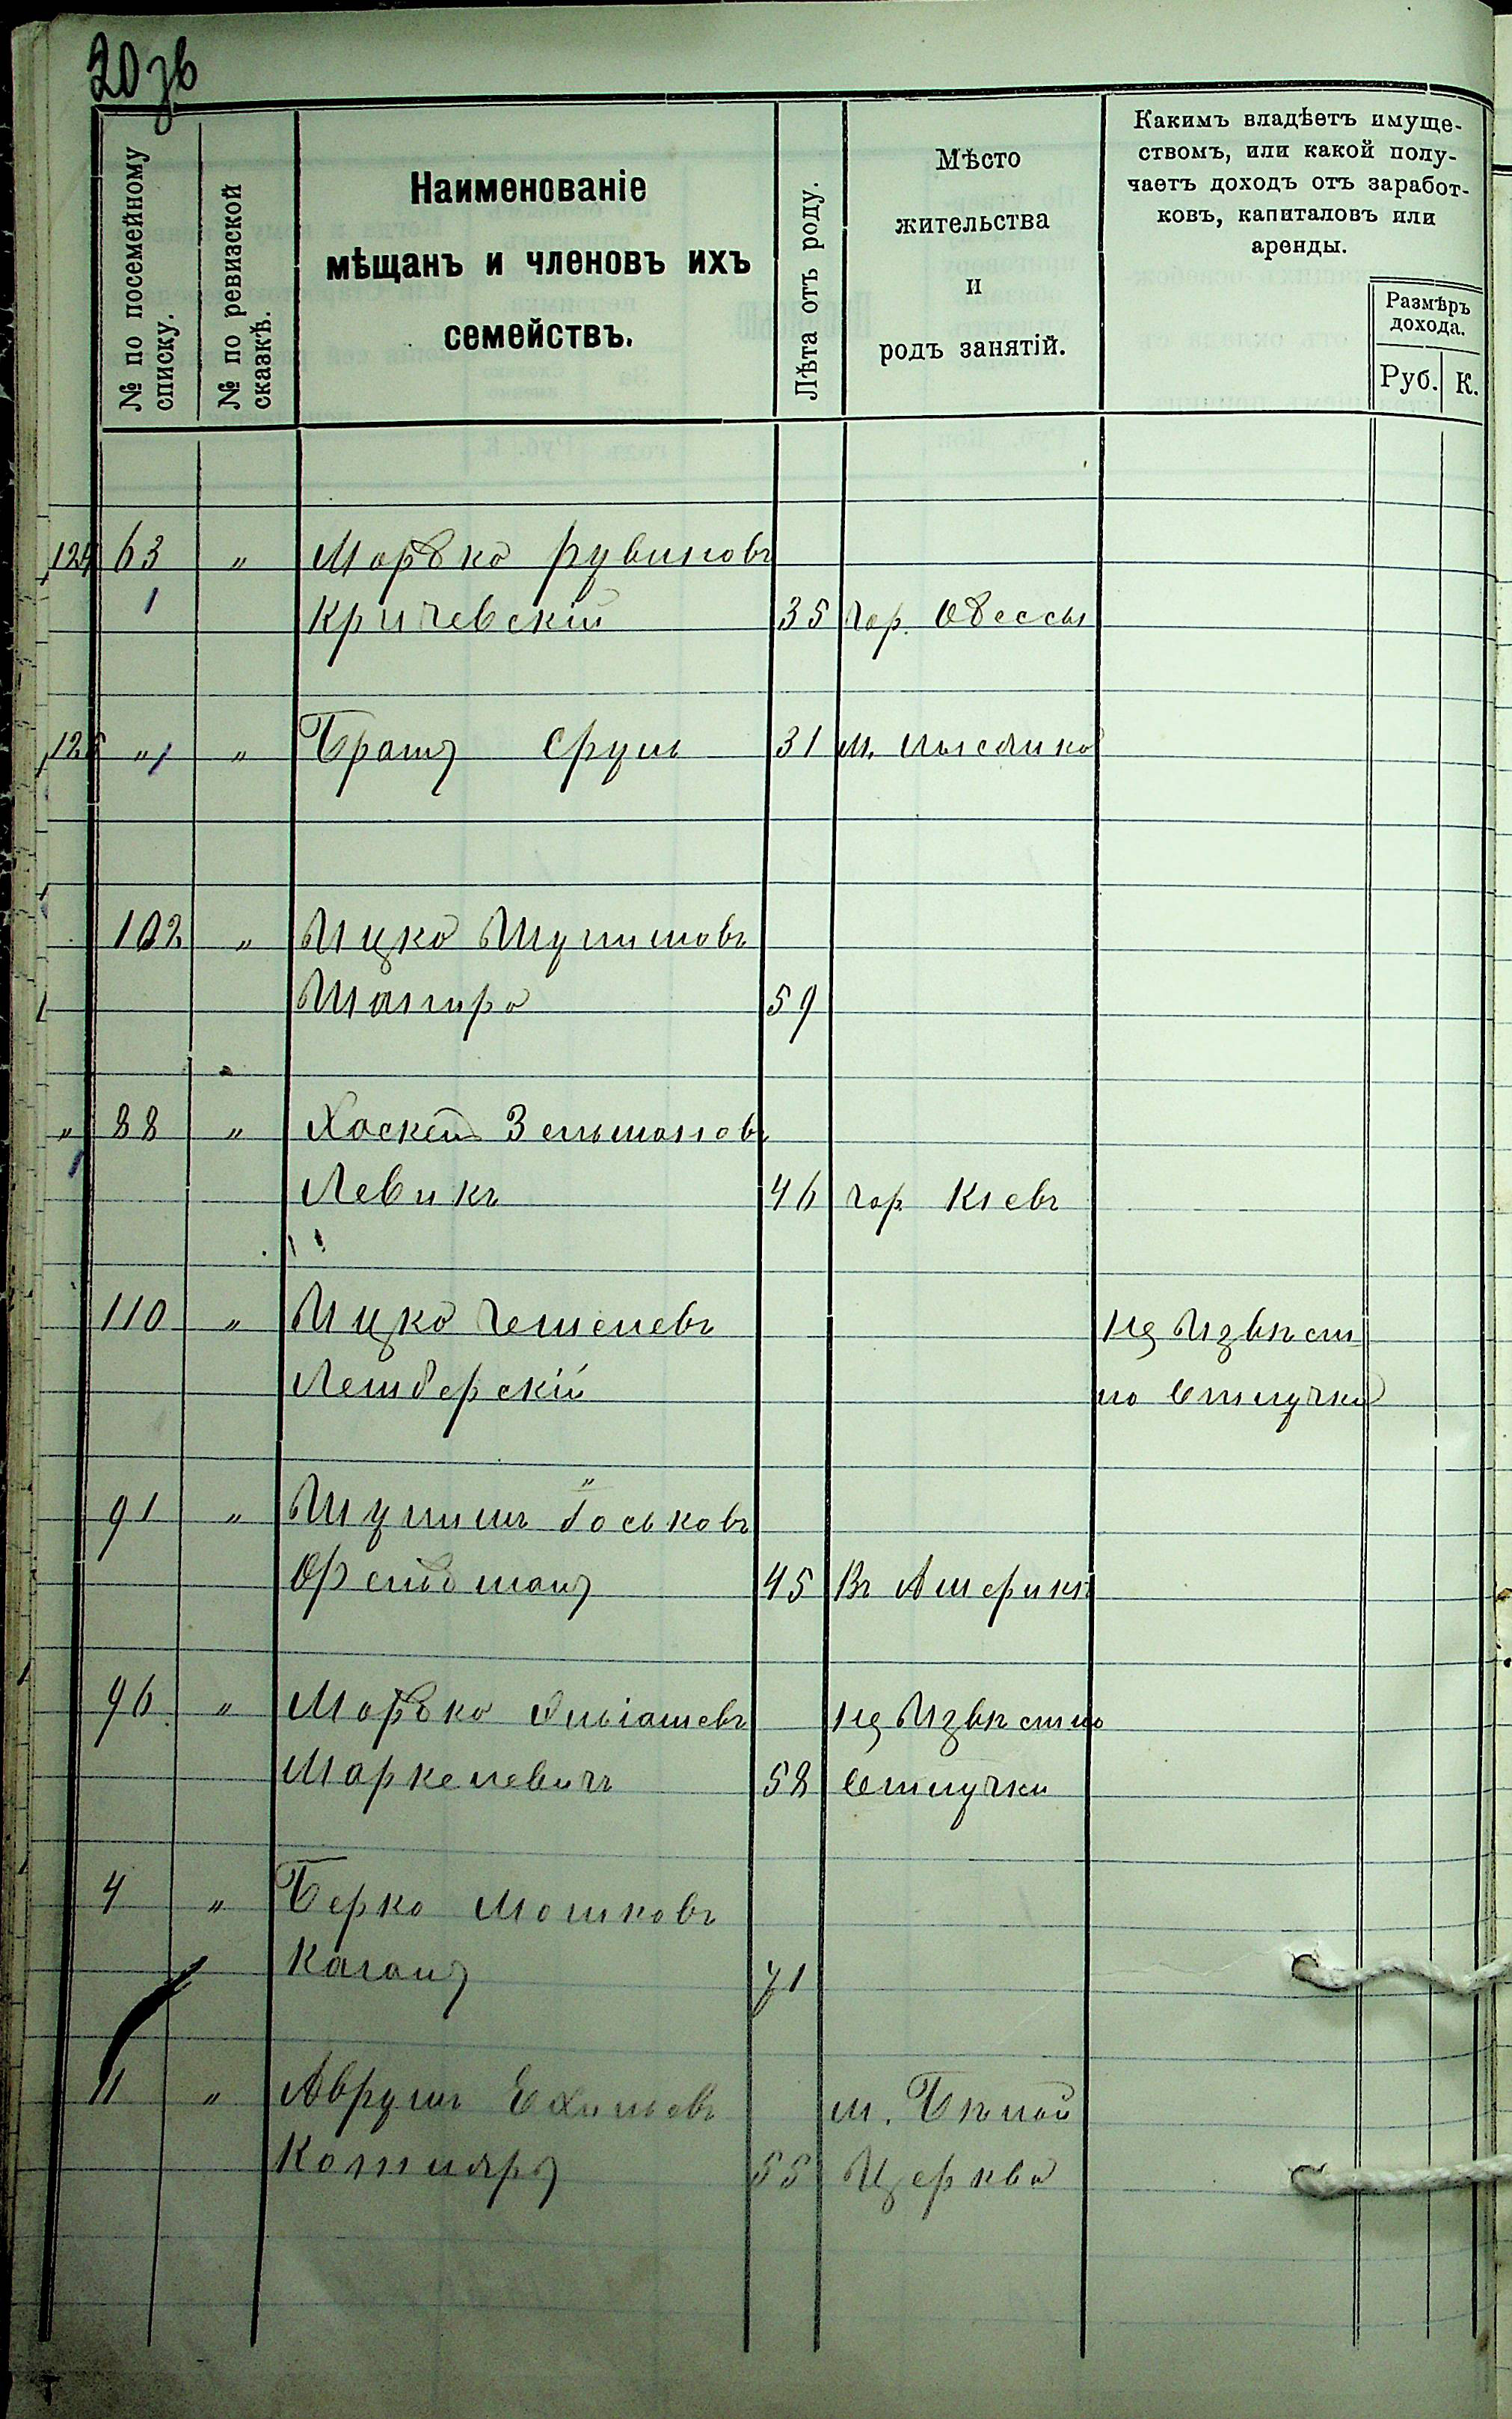 20 зв
№ по посемейному списку.
№ по ревизской сказкѣ.
Наименованіе
мѣщанъ и членовъ ихъ
семействъ.
Лѣта отъ роду.
Мѣсто
жительства
и
родъ занятій.
Какимъ владѣетъ имуще-
ствомъ, или какой полу-
чаетъ доходъ отъ заработ-
ковъ, капиталовъ или
аренды.
Размѣръ
дохода.
Руб. К.
124 63 " Мордко Рувиновъ
1 Кричевскій 35 гор. Одессы
125 " 1 " Братъ Сруль 31 м. Лысянка
102 " Ицко Шулимовъ
Шапиро 59
" 88 " Хаскель Зельмановъ
1 Левикъ 46 гор. Кіевъ
110 " Ицко
Лемберскій но отлучки
91 " Шулимъ Іоськовъ
Фельдманъ 45 Въ Америкѣ
96 " Мордко Эльіашевъ
Маркелевичъ 58 отлучки
4 " Берко Мошковъ
Каганъ 71
11 " Аврумъ Ехильевъ м. Бѣлой
Котляръ 55 Церква